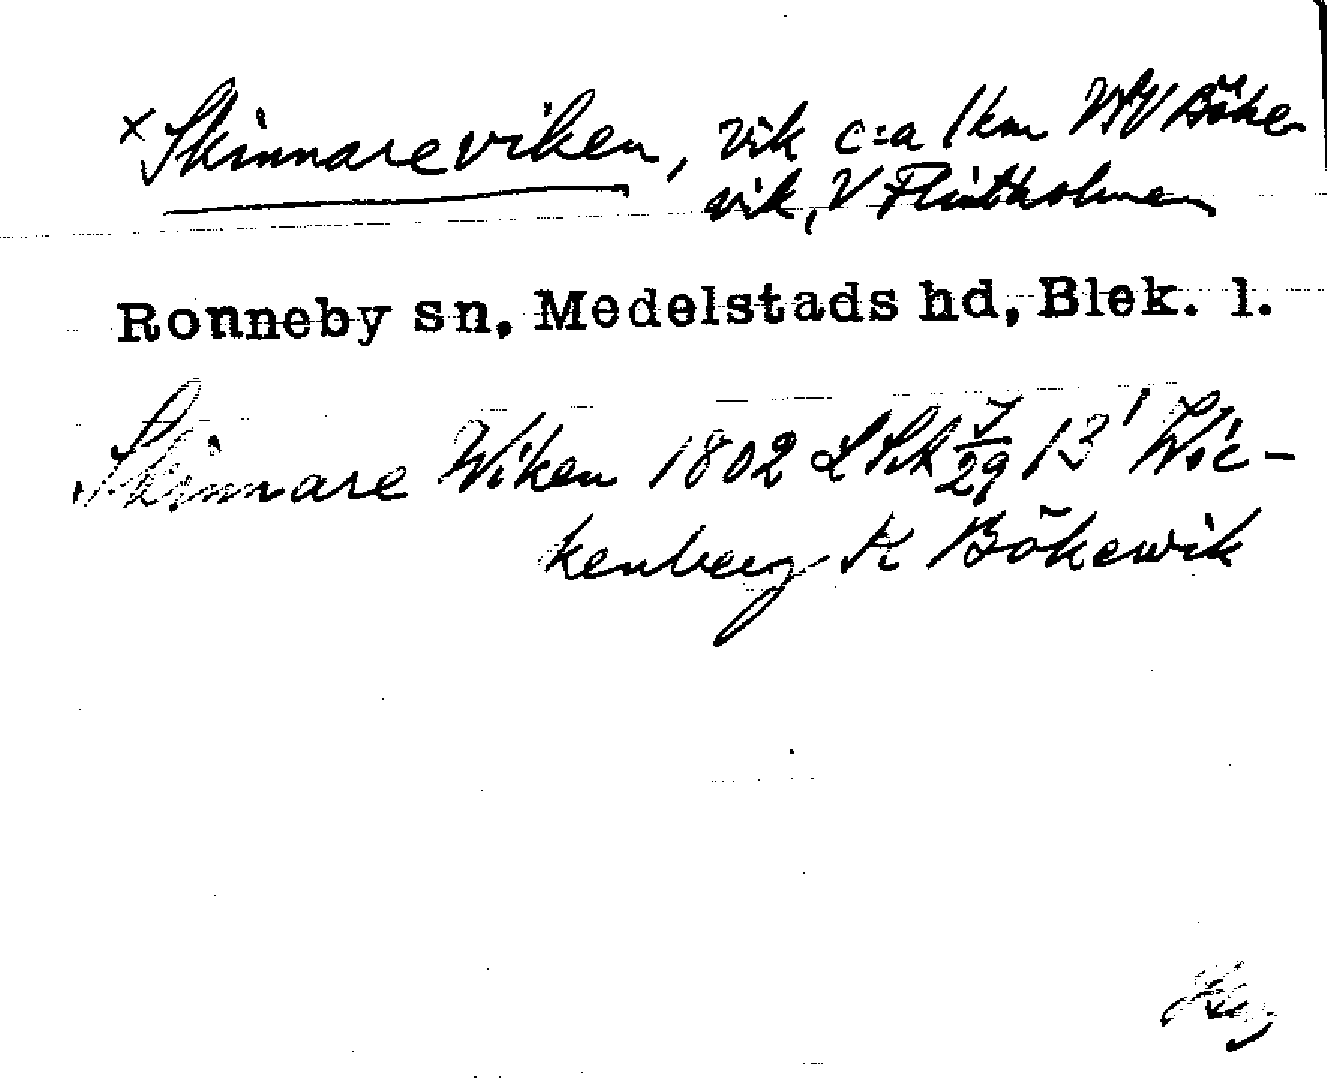 x Skinnareviken, vik c:a 1 km VSV Böke-
vik, V Flintholmen
Ronneby sn, Medelstads hd, Blek. l.
Skinnare Wiken 1802 LSk 7/29 13' Wic-
kenberg K Bökewik